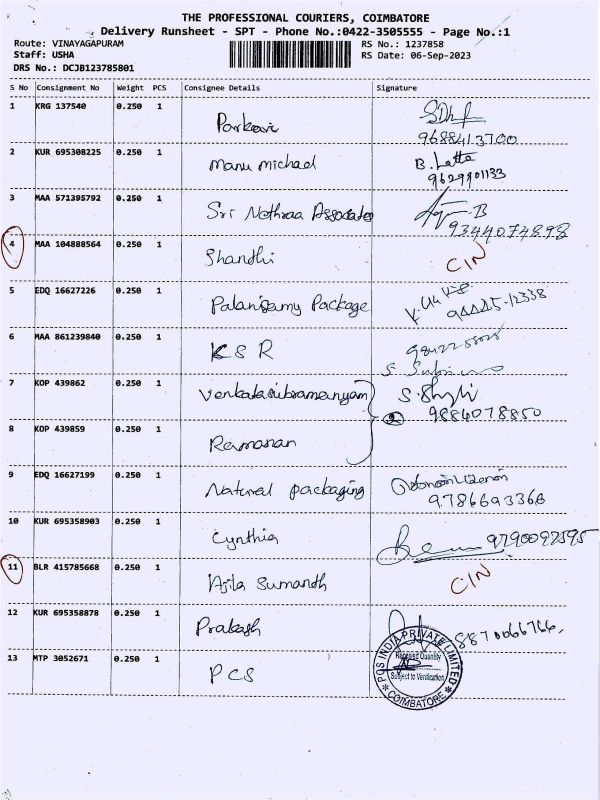 THE PROFESSIONAL COURIERS, COIMBATORE
Delivery Runsheet - SPT - Phone No.:0422-3505555 - Page No.:1
Route: VINAYAGAPURAM RS No.: 1237858
Staff: USHA RS Date: 06-Sep-2023
DRS No.: DCJB123785801
S No Consignment No Weight PCS Consignee Details Signature
1 KRG 137540 0.250 1
9688413700
2 KUR 695308225 0.250 1 manu michael B. Latta
9629901133
3 MAA 571395792 0.250 1 Sri Nethraa Associates
9344074898
4 MAA 104888564 0.250 1 Shandhi CIN
5 EDQ 16627226 0.250 1 Palanisamy Package 94445-12338
6 MAA 861239840 0.250 1 KSR
7 KOP 439862 0.250 1 Venkatasubramanyam
9884078850
8 KOP 439859 0.250 1 Ramanan
9 EDQ 16627199 0.250 1 Natural packaging
9786693366
10 KUR 695358903 0.250 1 Cynthia 9790097595
11 BLR 415785668 0.250 1 Ajila Sumandh CIN
12 KUR 695358878 0.250 1 Prakash 8870066766,
13 MTP 3052671 0.250 1 PCS
INDIA PRIVATE LIMITED
Received Quantity
Subject to Verification
* COIMBATORE *